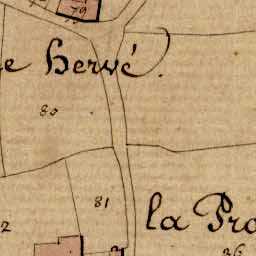 79
e hervé.
80
81
la Pro
2
36